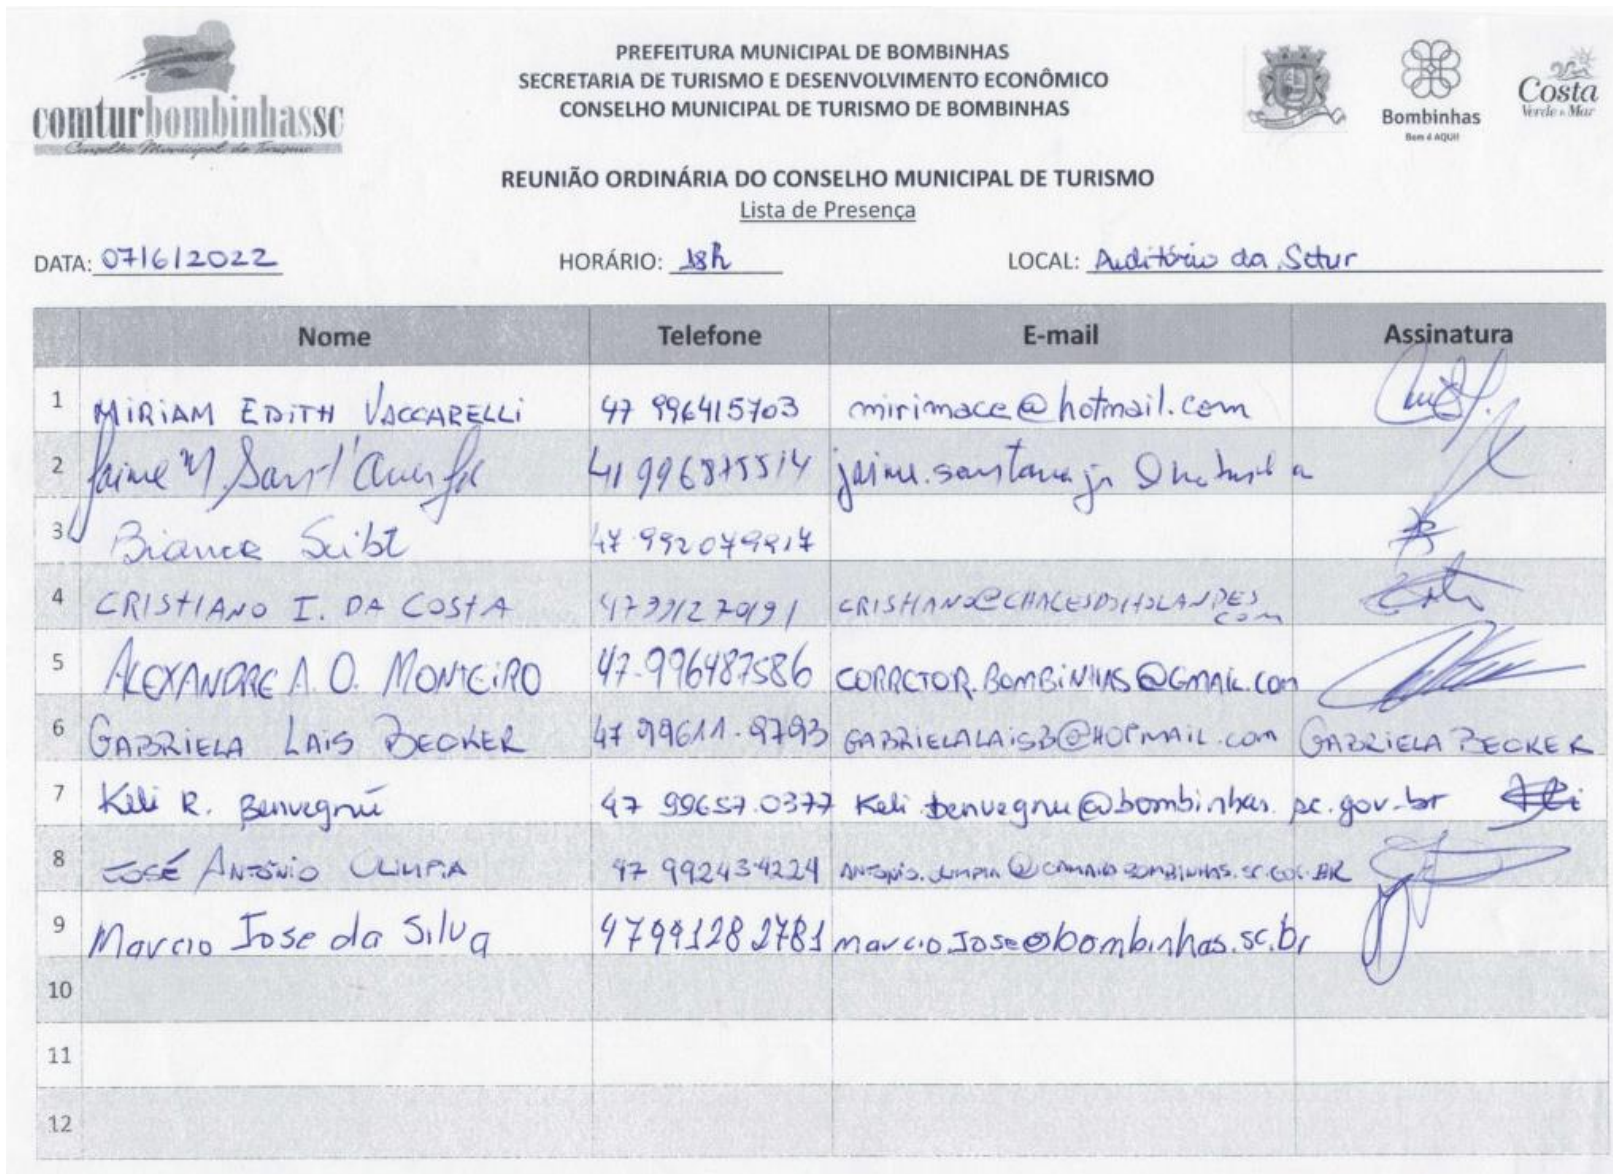 comturbombinhassc
Conselho Municipal de Turismo
PREFEITURA MUNICIPAL DE BOMBINHAS
SECRETARIA DE TURISMO E DESENVOLVIMENTO ECONÔMICO
CONSELHO MUNICIPAL DE TURISMO DE BOMBINHAS
Bombinhas
Bom é AQUI!
Costa
Verde e Mar
REUNIÃO ORDINÁRIA DO CONSELHO MUNICIPAL DE TURISMO
Lista de Presença
DATA: 07/6/2022 HORÁRIO: 18h LOCAL: Auditório da Setur
Nome Telefone E-mail Assinatura
1 MIRIAM EDITH VACCARELLI 47 996415703 mirimace@hotmail.com
2 Jaime M. Sant'Ana 41 996875514
3 Bianca Seibt 47.992079917
4 CRISTIANO I. DA COSTA
5 ALEXANDRE A. O. MONTEIRO 47.996487586 CORRETOR.BOMBINHAS@GMAIL.COM
6 GABRIELA LAIS BECKER 47 99611-9793 GABRIELALAISB@HOTMAIL.COM GABRIELA BECKER
7 Keli R. Benvegnú 47 99657.0377 Keli.benvegnu@bombinhas.sc.gov.br
8 JOSÉ ANTÔNIO OLIMPIA 47 992434224
9 Marcio Jose da Silva 47991282781 marcio.Jose@bombinhas.sc.br
10
11
12